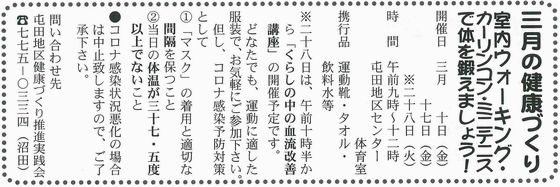 三月の健康づくり
室内ウォーキング・
カーリンコン・ミニテニス
で体を鍛えましょう!
開催日 三月 十日(金)
十七日(金)
※二十八日(火)
時間 午前九時~十二時
屯田地区センター
体育室
携行品 運動靴・タオル・
飲料水等
※二十八日は、午前十時半か
ら「くらしの中の血流改善
講座」の開催予定です。
どなたでも、運動に適した
服装で、お気軽にご参加下さい。
但し、コロナ感染予防対策
として
①「マスク」の着用と適切な
間隔を保つこと
②当日の体温が三十七・五度
以上でないこと
●コロナ感染状況悪化の場合
は中止致しますので、ご了
承下さい。
問い合わせ先
屯田地区健康づくり推進実践会
☎七七五-〇三三四(沼田)